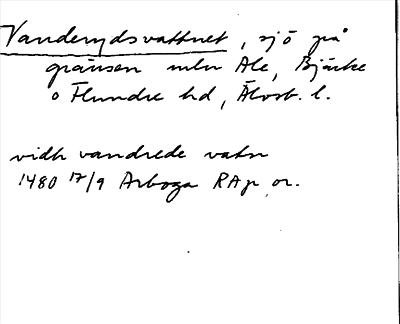 Vanderydsvattnet, sjö på
gränsen mln Ale, Bjärke
o Flundre hd, Älvsb. l.
vidh vandrede vatn
1480 17/9 Arboga RAp or.